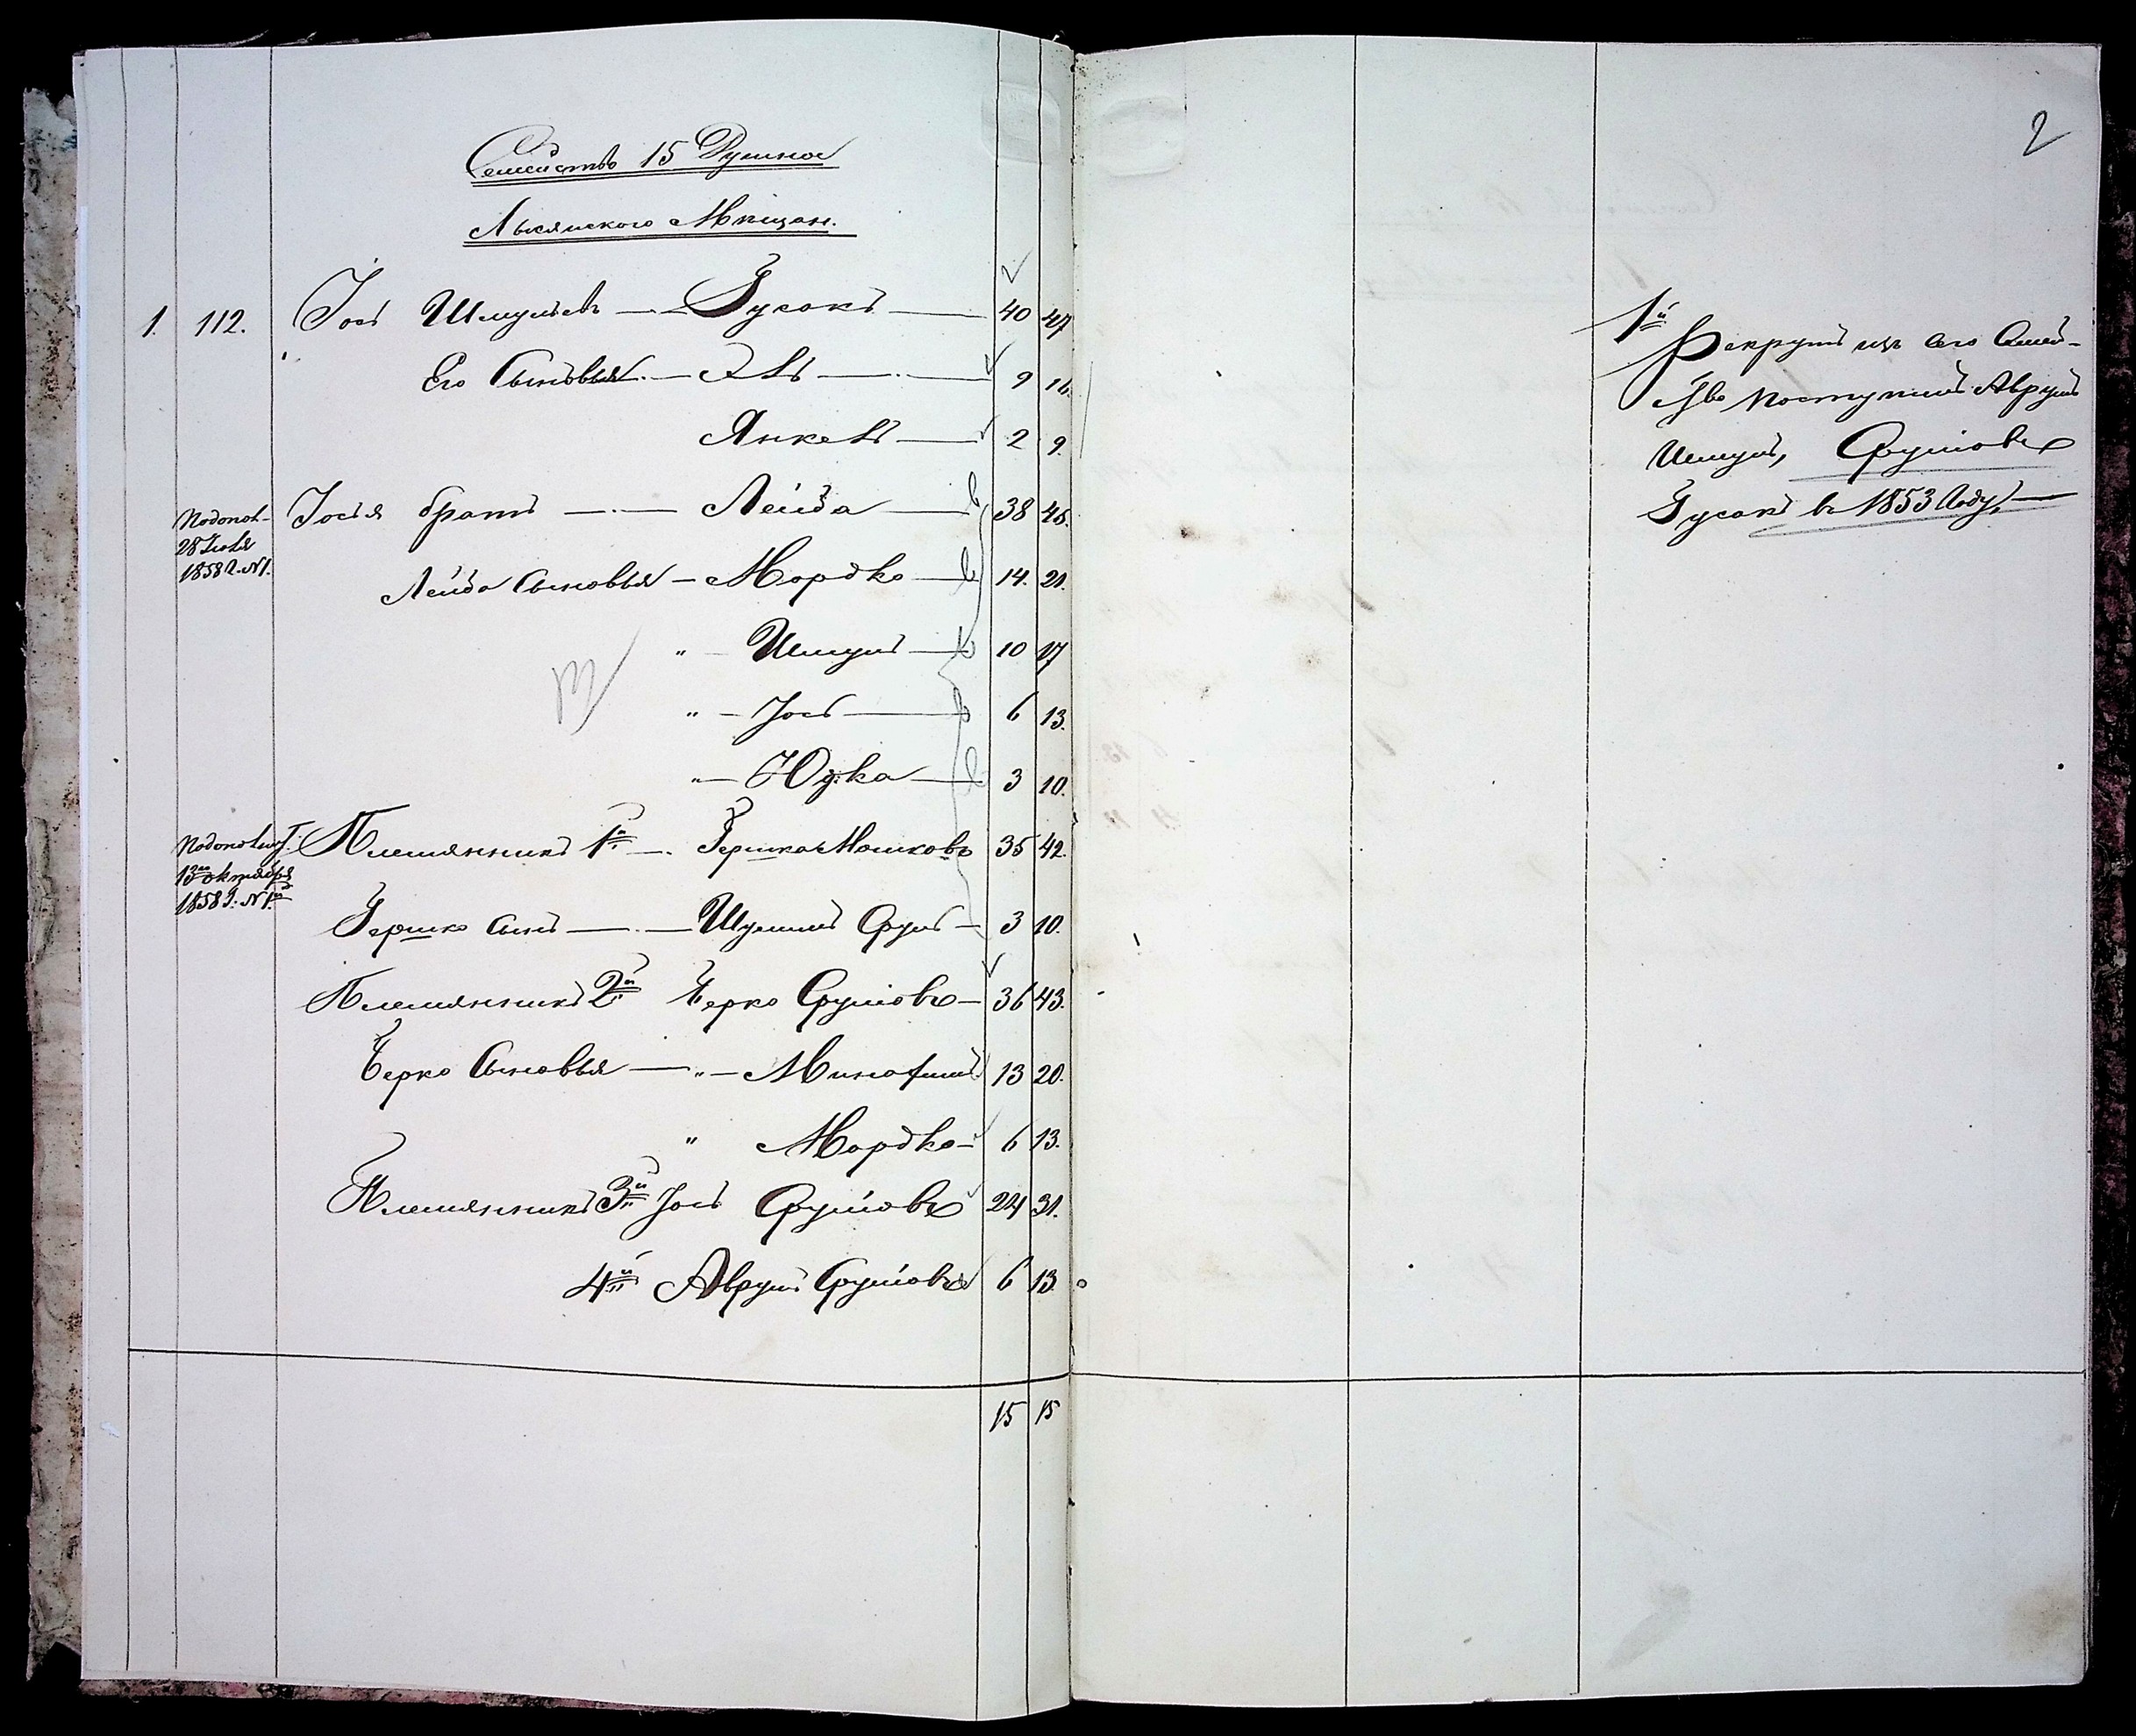 2
Семейство 15 Душное
Лысянского Мѣщан.
1. 112. Іось Шмулевъ — Гусакъ — 40 47
Его Сыновья — — 9 16.
Янкель — 2 9.
Іося братъ — Лейба — 38 45.
Подопол-
28 Іюля
1858 г. №1.
Лейба Сыновья — Мордко 14. 21.
" — Шмуль 10 17
" — Іось — 6 13.
" — Юдка — 3 10.
13го октября
1858 г. № 1й
Племянникъ 1й — Гершко Мошковъ 35 42.
Гершко сынъ — Шулимъ Сруль — 3 10.
Племянникъ 2й Берко Срулёвъ — 36 43.
Берко Сыновья — " — 13 20.
" Мордко — 6 13.
Племянникъ 3й Іось Срулёвъ 24 31.
4й Аврумъ Срулёвъ 6 13.
15 15
1й
Рекрутъ изъ сего Семей-
ство поступилъ Аврумъ
Шмуль, Срулёвъ
Гусакъ въ 1853 Году, —